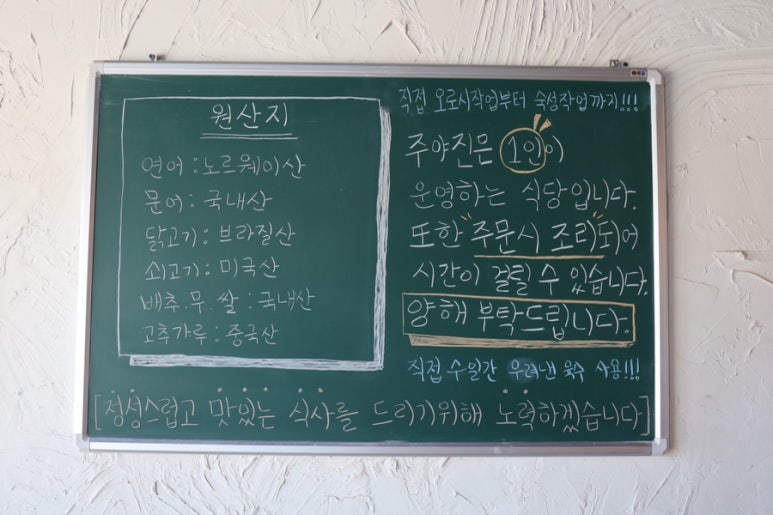 원산지
연어 : 노르웨이산
문어 : 국내산
닭고기 : 브라질산
쇠고기 : 미국산
배추.무.쌀 : 국내산
고추가루 : 중국산
직접 오로시작업부터 숙성작업까지!!!
주야진은 1인이
운영하는 식당입니다.
또한 주문시 조리되어
시간이 걸릴 수 있습니다.
양해 부탁드립니다.
직접 수일간 우려낸 육수 사용!!!
[정성스럽고 맛있는 식사를 드리기위해 노력하겠습니다]